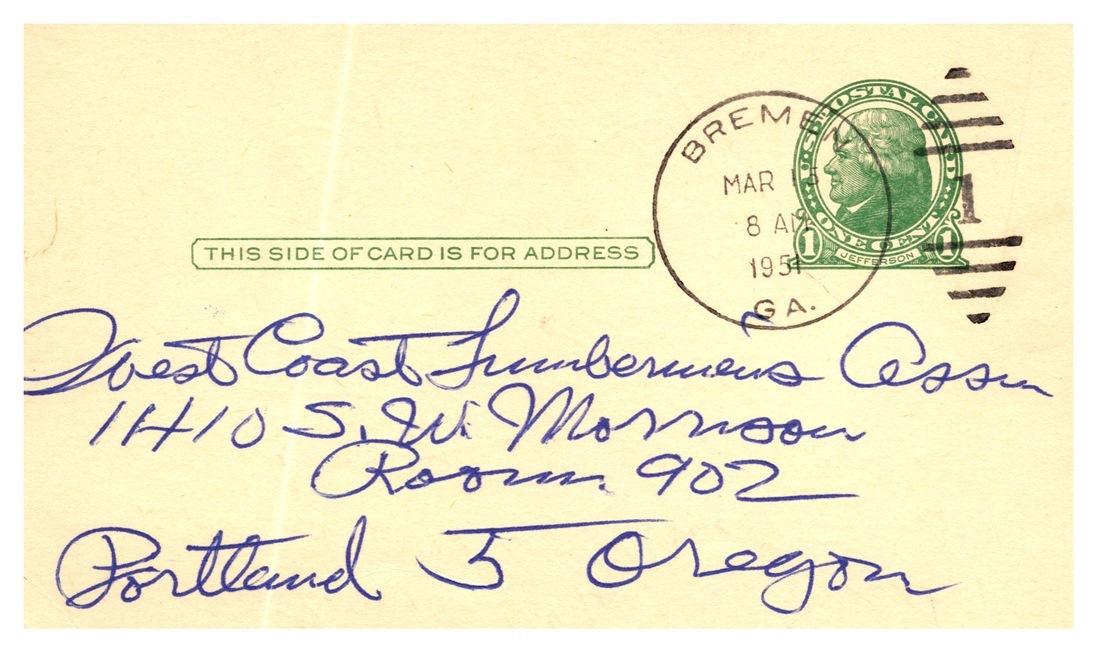 BREMEN
MAR 15
8 AM
1951
GA.
U·S·POSTAL CARD
1 ONE CENT 1
JEFFERSON
1
THIS SIDE OF CARD IS FOR ADDRESS
West Coast Lumbermen's Assn
1410 S. W. Morrison
Room. 902
Portland 5 Oregon